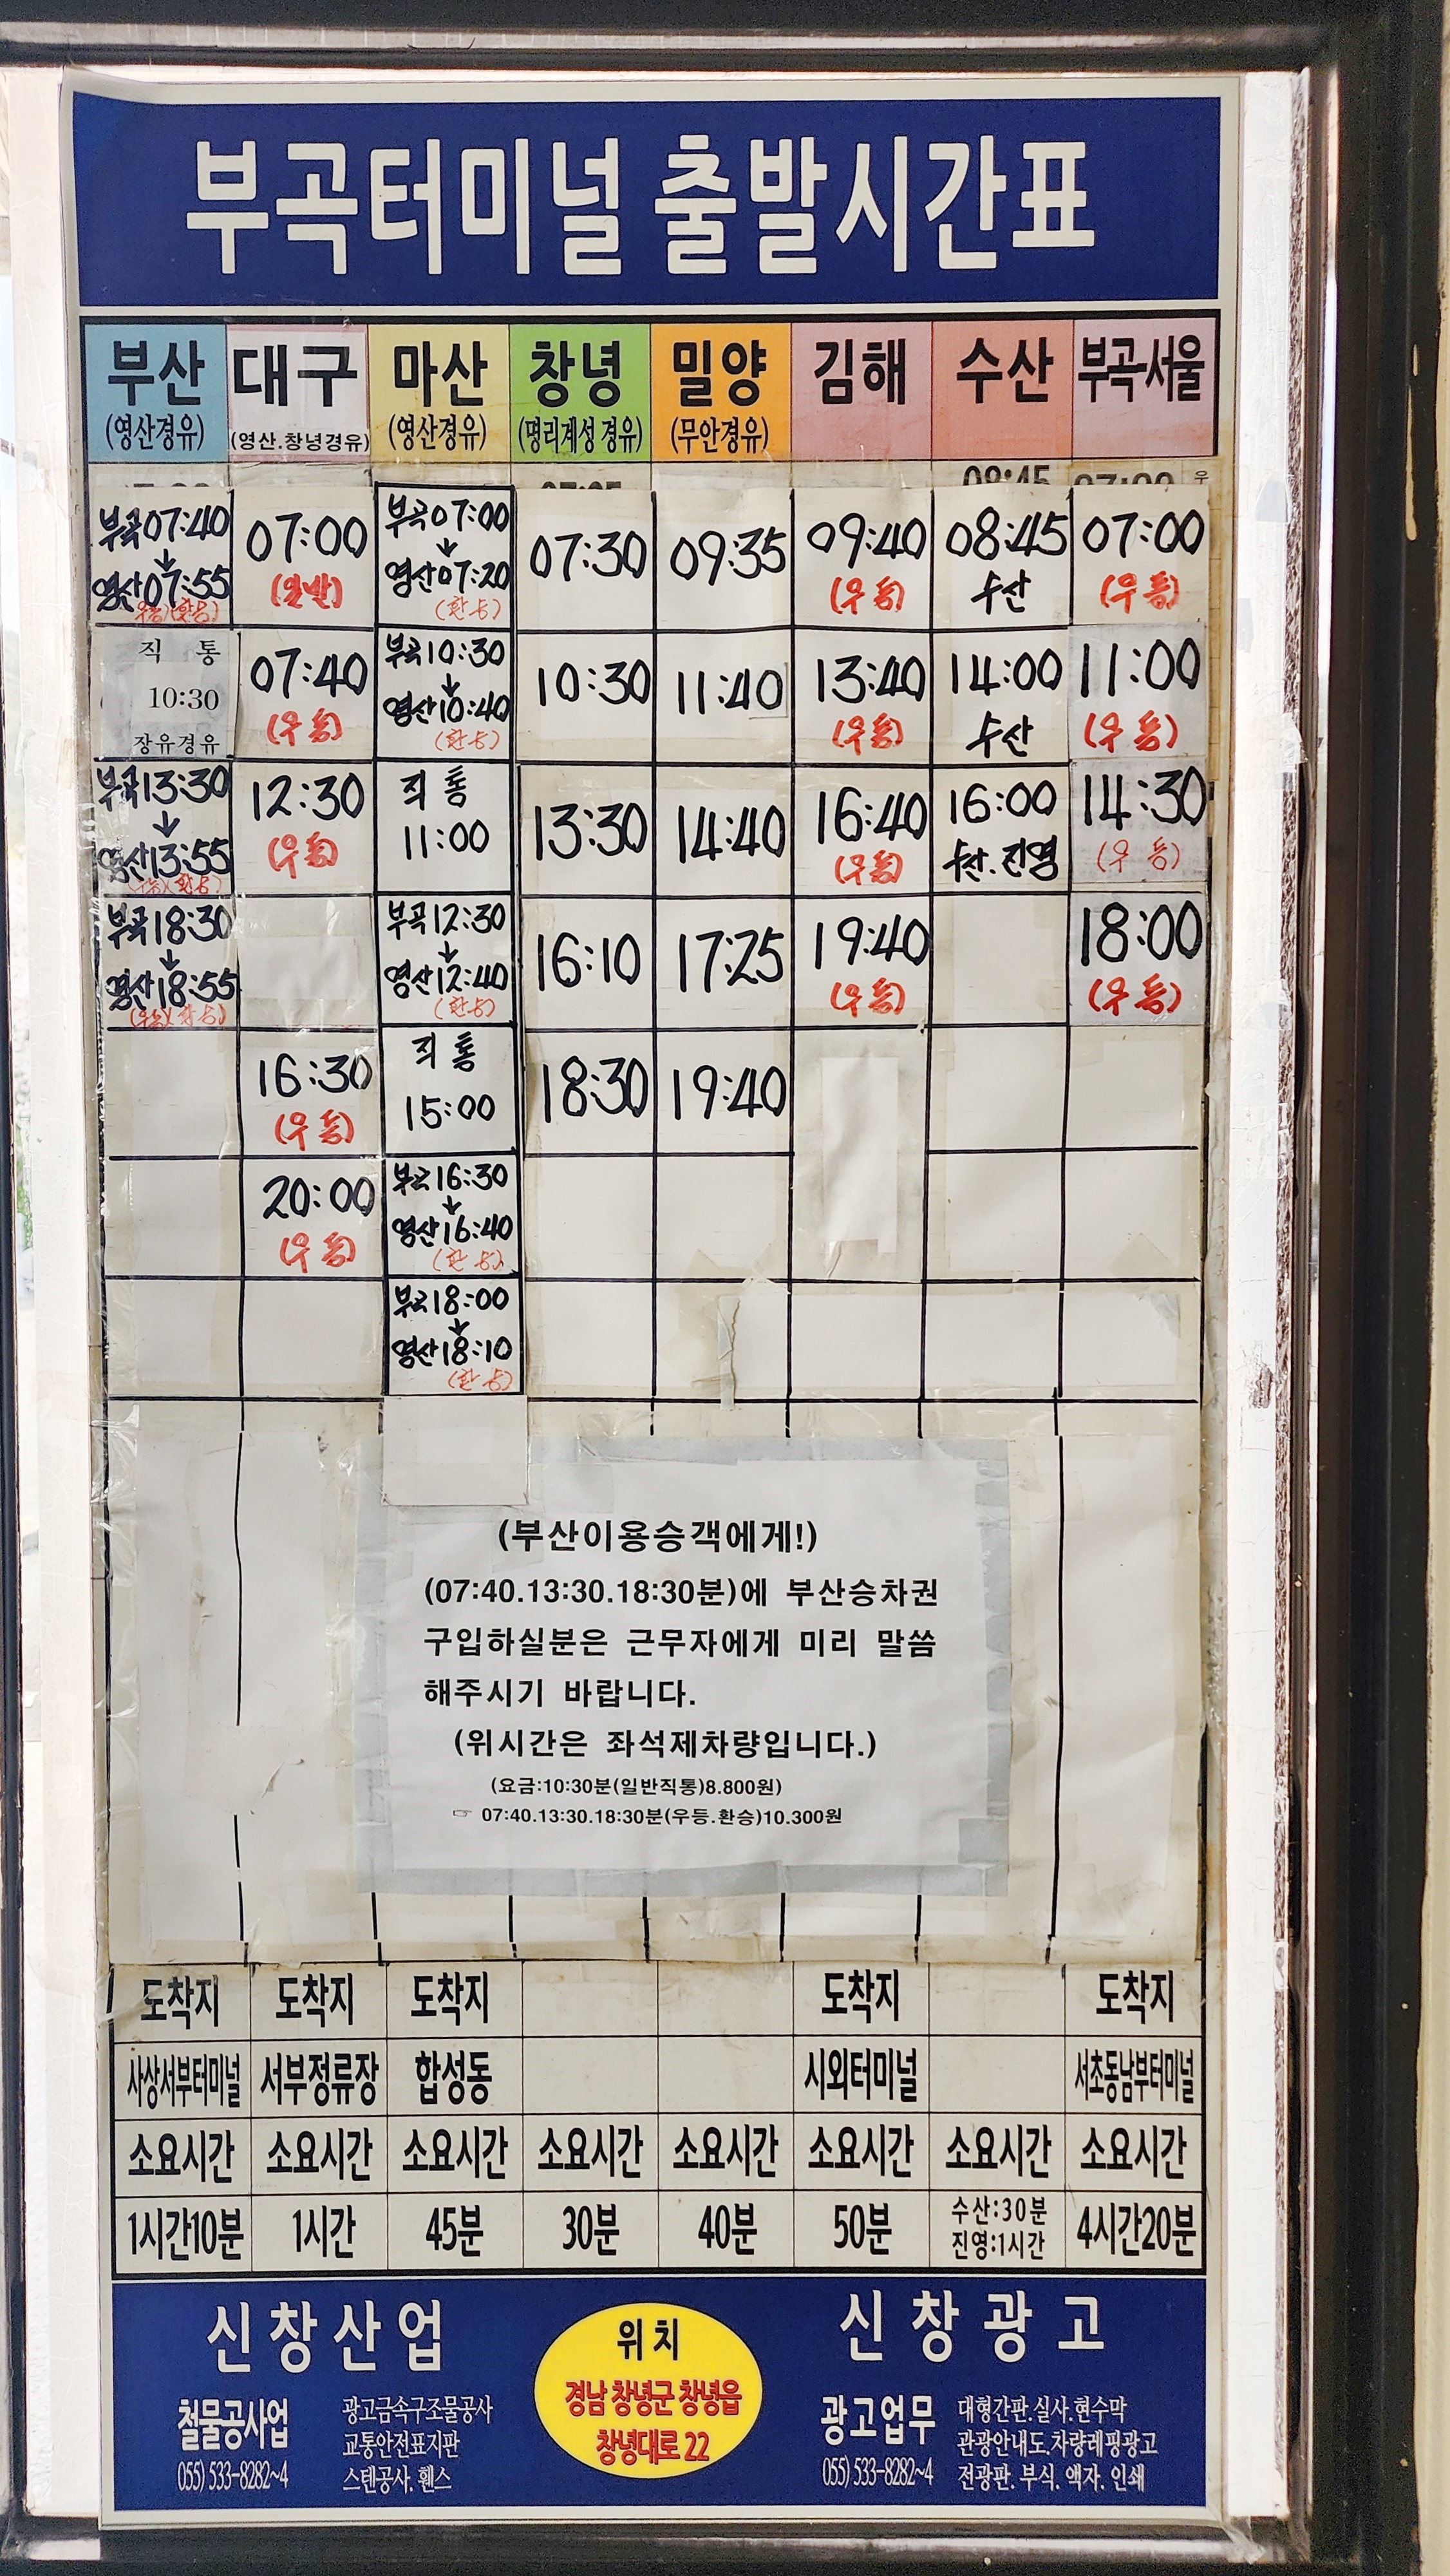 부곡터미널 출발시간표
부산 대구 마산 창녕 밀양 김해 수산 부곡-서울
(영산경유) (영산.창녕경유) (영산경유) (명리계성 경유) (무안경유)
08:45 07:00 우
부곡07:40 07:00 부곡07:00 07:30 09:35 09:40 08:45 07:00
↓ ↓
영산07:55 (일반) 영산07:20 (우등) 수산 (우등)
(우등)(환승) (환승)
직 통 07:40 부곡10:30 10:30 11:40 13:40 14:00 11:00
10:30 ↓
장유경유 (우등) 영산10:40 (우등) 수산 (우등)
(환승)
부곡13:30 12:30 직통 13:30 14:40 16:40 16:00 14:30
↓
영산13:55 (우등) 11:00 (우등) 수산.진영 (우등)
(우등)(환승)
부곡18:30 부곡12:30 16:10 17:25 19:40 18:00
↓ ↓
영산18:55 영산12:40 (우등) (우등)
(우등)(환승) (환승)
16:30 직통 18:30 19:40
(우등) 15:00
20:00 부곡16:30
↓
(우등) 영산16:40
(환승)
부곡18:00
↓
영산18:10
(환승)
(부산이용승객에게!)
(07:40.13:30.18:30분)에 부산승차권
구입하실분은 근무자에게 미리 말씀
해주시기 바랍니다.
(위시간은 좌석제차량입니다.)
(요금:10:30분(일반직통)8.800원)
☞ 07:40.13:30.18:30분(우등.환승)10.300원
도착지 도착지 도착지 도착지 도착지
사상서부터미널 서부정류장 합성동 시외터미널 서초동남부터미널
소요시간 소요시간 소요시간 소요시간 소요시간 소요시간 소요시간 소요시간
1시간10분 1시간 45분 30분 40분 50분 수산:30분 4시간20분
진영:1시간
신창산업
철물공사업
055) 533-8282~4
광고금속구조물공사
교통안전표지판
스텐공사. 휀스
위치
경남 창녕군 창녕읍
창녕대로 22
신창광고
광고업무
055) 533-8282~4
대형간판.실사.현수막
관광안내도.차량레핑광고
전광판. 부식. 액자. 인쇄